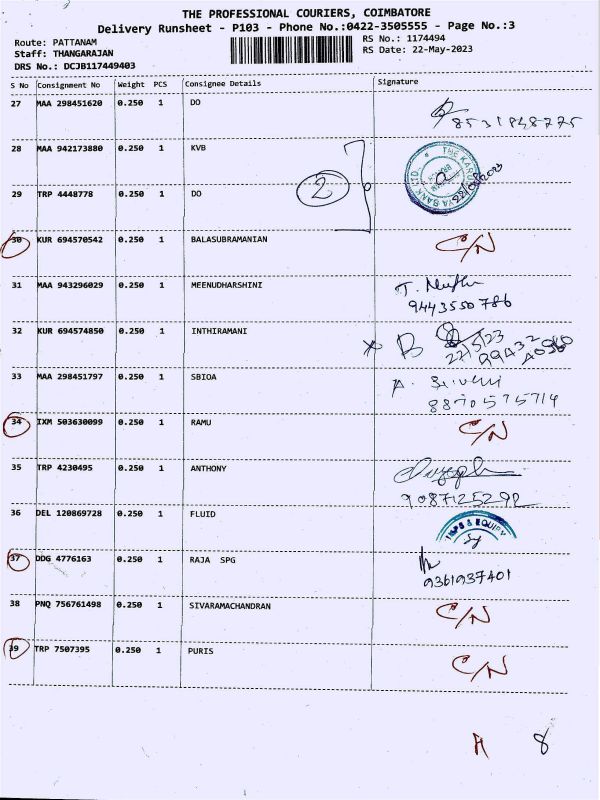 THE PROFESSIONAL COURIERS, COIMBATORE
Delivery Runsheet - P103 - Phone No.:0422-3505555 - Page No.:3
Route: PATTANAM
RS No.: 1174494
Staff: THANGARAJAN
RS Date: 22-May-2023
DRS No.: DCJB117449403
S No Consignment No Weight PCS Consignee Details Signature
27 MAA 298451620 0.250 1 DO
28 MAA 942173880 0.250 1 KVB
2
29 TRP 4448778 0.250 1 DO
30 KUR 694570542 0.250 1 BALASUBRAMANIAN C/N
31 MAA 943296029 0.250 1 MEENUDHARSHINI
9443550786
32 KUR 694574850 0.250 1 INTHIRAMANI
22/5/23
33 MAA 298451797 0.250 1 SBIOA
34 IXM 503630099 0.250 1 RAMU C/N
35 TRP 4230495 0.250 1 ANTHONY
9087125292
36 DEL 120869728 0.250 1 FLUID
37 DDG 4776163 0.250 1 RAJA SPG
9361937401
38 PNQ 756761498 0.250 1 SIVARAMACHANDRAN C/N
39 TRP 7507395 0.250 1 PURIS C/N
8